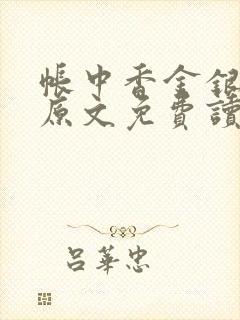 帳中香金銀
原文免費讀
呂華忠